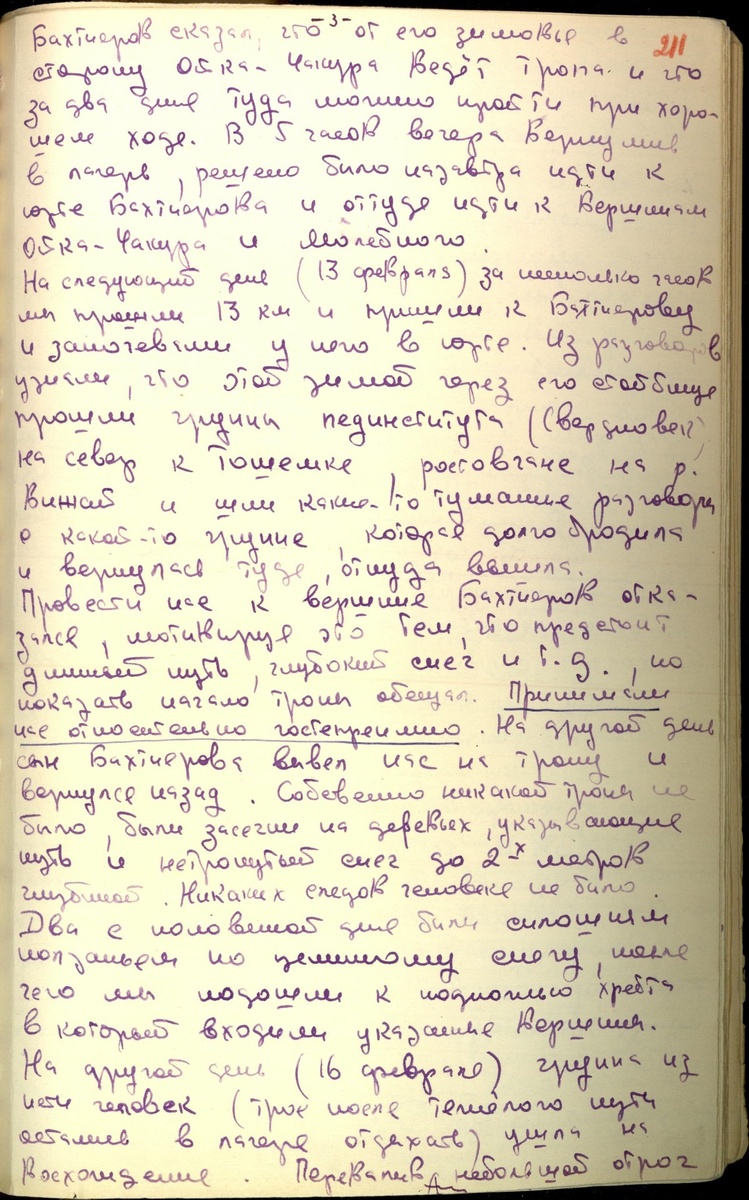 -3-
211
Бахтиеров сказал, что от его зимовья в
сторону Ойка-Чакура ведёт тропа и что
за два дня туда можно пройти при хоро-
шем ходе. В 5 часов вечера вернулись
в лагерь, решено было назавтра идти к
юрте Бахтиерова и оттуда идти к вершинам
Ойка-Чакура и Молебного.
На следующий день (13 февраля) за несколько часов
мы прошли 13 км и пришли к Бахтиерову
и заночевали у него в юрте. Из разговоров
узнали, что этой зимой через его стойбище
прошли группы пединститута (Свердловск)
на север к Тошемке, ростовчане на р.
Вижай и шли какие-то туманные разговоры
о какой-то группе, которая долго бродила
и вернулась туда, откуда вышла.
Провести нас к вершине Бахтиеров отка-
зался, мотивируя это тем, что предстоит
длинный путь, глубокий снег и т.д., но
показать начало тропы обещал. Принимали
нас относительно гостеприимно. На другой день
сын Бахтиерова вывел нас на тропу и
вернулся назад. Собственно никакой тропы не
было, были засечки на деревьях, указывающие
путь и нетронутый снег до 2-х метров
глубиной. Никаких следов человека не было.
Два с половиной дня были сплошным
ползаньем по целинному снегу, после
чего мы подошли к подножью хребта
в который входили указанные вершины.
На другой день (16 февраля) группа из
пяти человек (трое после тяжёлого пути
остались в лагере отдыхать) ушла на
восхождение. Перевалив небольшой отрог